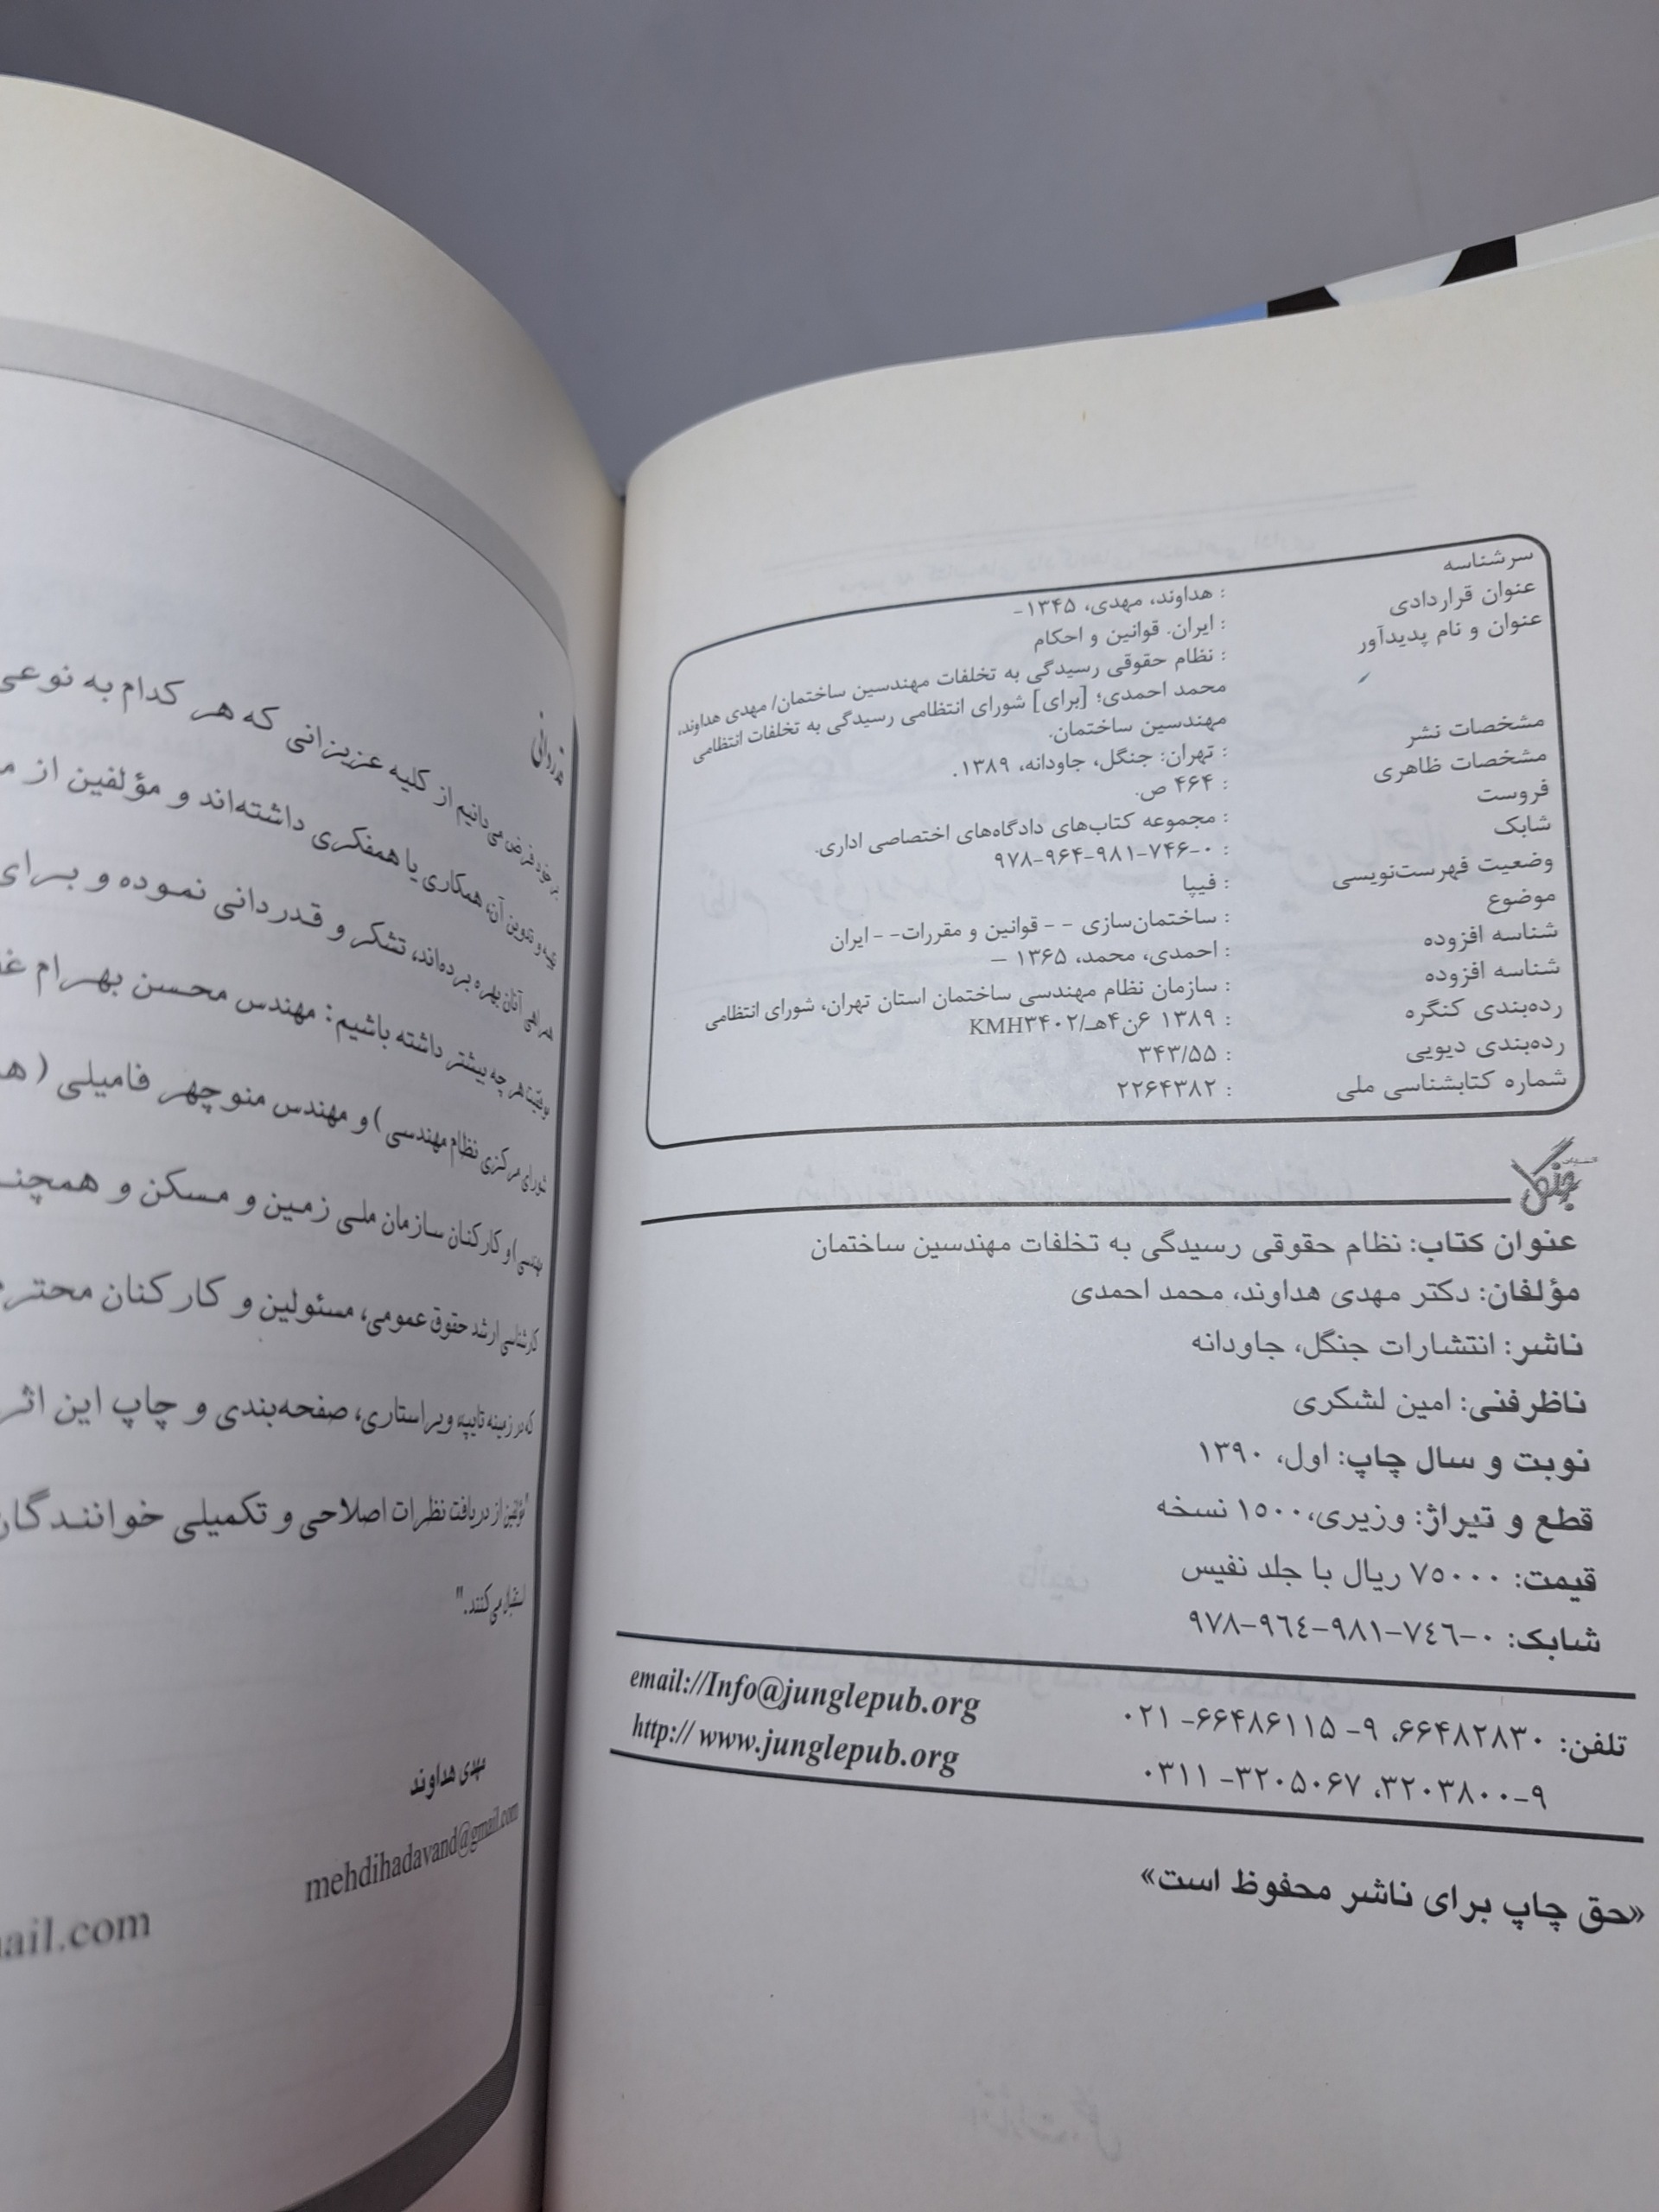 سرشناسه : هداوند، مهدی، ۱۳۴۵-
عنوان قراردادی : ایران. قوانین و احکام
عنوان و نام پدیدآور : نظام حقوقی رسیدگی به تخلفات مهندسین ساختمان/ مهدی هداوند،
محمد احمدی؛ [برای] شورای انتظامی رسیدگی به تخلفات انتظامی
مهندسین ساختمان.
مشخصات نشر : تهران: جنگل، جاودانه، ۱۳۸۹.
مشخصات ظاهری : ۴۶۴ ص.
فروست : مجموعه کتاب‌های دادگاه‌های اختصاصی اداری.
شابک : ۹۷۸-۹۶۴-۹۸۱-۷۴۶-۰
وضعیت فهرست‌نویسی : فیپا
موضوع : ساختمان‌سازی - - قوانین و مقررات- - ایران
شناسه افزوده : احمدی، محمد، ۱۳۶۵ –
شناسه افزوده : سازمان نظام مهندسی ساختمان استان تهران، شورای انتظامی
رده‌بندی کنگره : ۱۳۸۹ ۶ن۴هـ/KMH۳۴۰۲
رده‌بندی دیویی : ۳۴۳/۵۵
شماره کتابشناسی ملی : ۲۲۶۴۳۸۲
انتشارات جنگل
عنوان کتاب: نظام حقوقی رسیدگی به تخلفات مهندسین ساختمان
مؤلفان: دکتر مهدی هداوند، محمد احمدی
ناشر: انتشارات جنگل، جاودانه
ناظر فنی: امین لشکری
نوبت و سال چاپ: اول، ۱۳۹۰
قطع و تیراژ: وزیری، ۱۵۰۰ نسخه
قیمت: ۷۵۰۰۰ ریال با جلد نفیس
شابک: ۹۷۸-۹٦٤-۹۸۱-۷٤٦-۰
تلفن: ۶۶۴۸۲۸۳۰، ۹- ۶۶۴۸۶۱۱۵- ۰۲۱
۳۲۰۳۸۰۰-۹، ۳۲۰۵۰۶۷- ۰۳۱۱
email://Info@junglepub.org
http:// www.junglepub.org
«حق چاپ برای ناشر محفوظ است»
قدردانی
بر خود فرض می‌دانیم از کلیه عزیزانی که هر کدام به نوعی
تهیه و تدوین آن، همکاری یا همفکری داشته‌اند و مؤلفین از
همراهی آنان بهره برده‌اند، تشکر و قدردانی نموده و برای
موفقیت هر چه بیشتر داشته باشیم: مهندس محسن بهرام
شورای مرکزی نظام مهندسی) و مهندس منوچهر فامیلی (
مهندسی) و کارکنان سازمان ملی زمین و مسکن و
کارشناسی ارشد حقوق عمومی، مسئولین و کارکنان محترم
که در زمینه تایپ، ویراستاری، صفحه‌بندی و چاپ این اثر
"مؤلفین از دریافت نظرات اصلاحی و تکمیلی خوانندگان
استقبال می‌کنند."
مهدی هداوند
mehdihadavand@gmail.com
ail.com